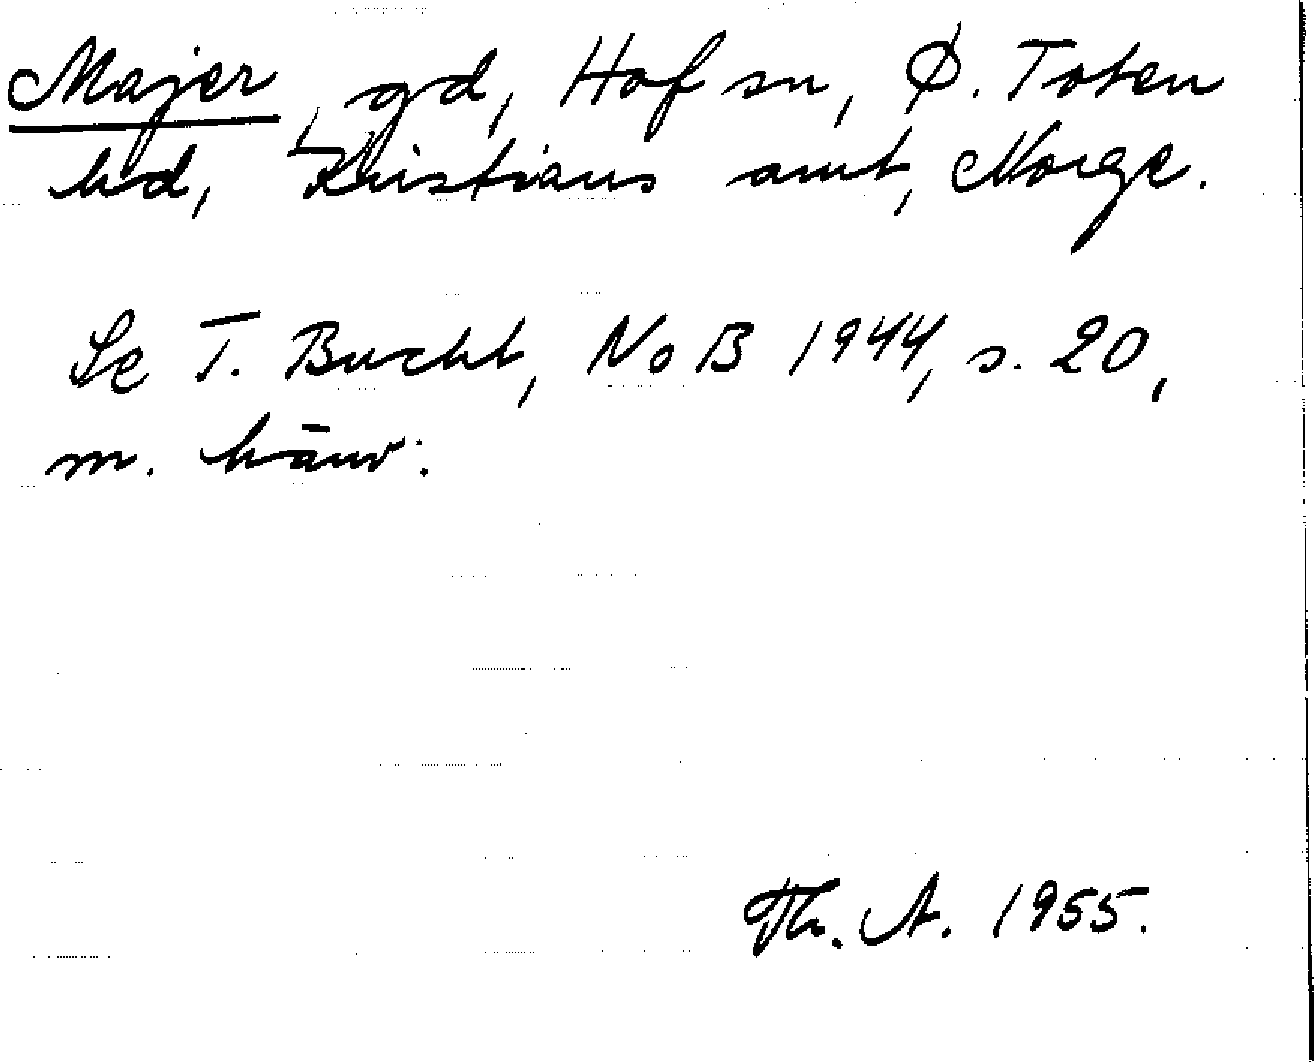 Majer, gd, Hof sn, Ø. Toten
hd, Kristians amt, Norge.
Se T. Bucht, NoB 1944, s. 20,
m. hänv.
Th. A. 1955.